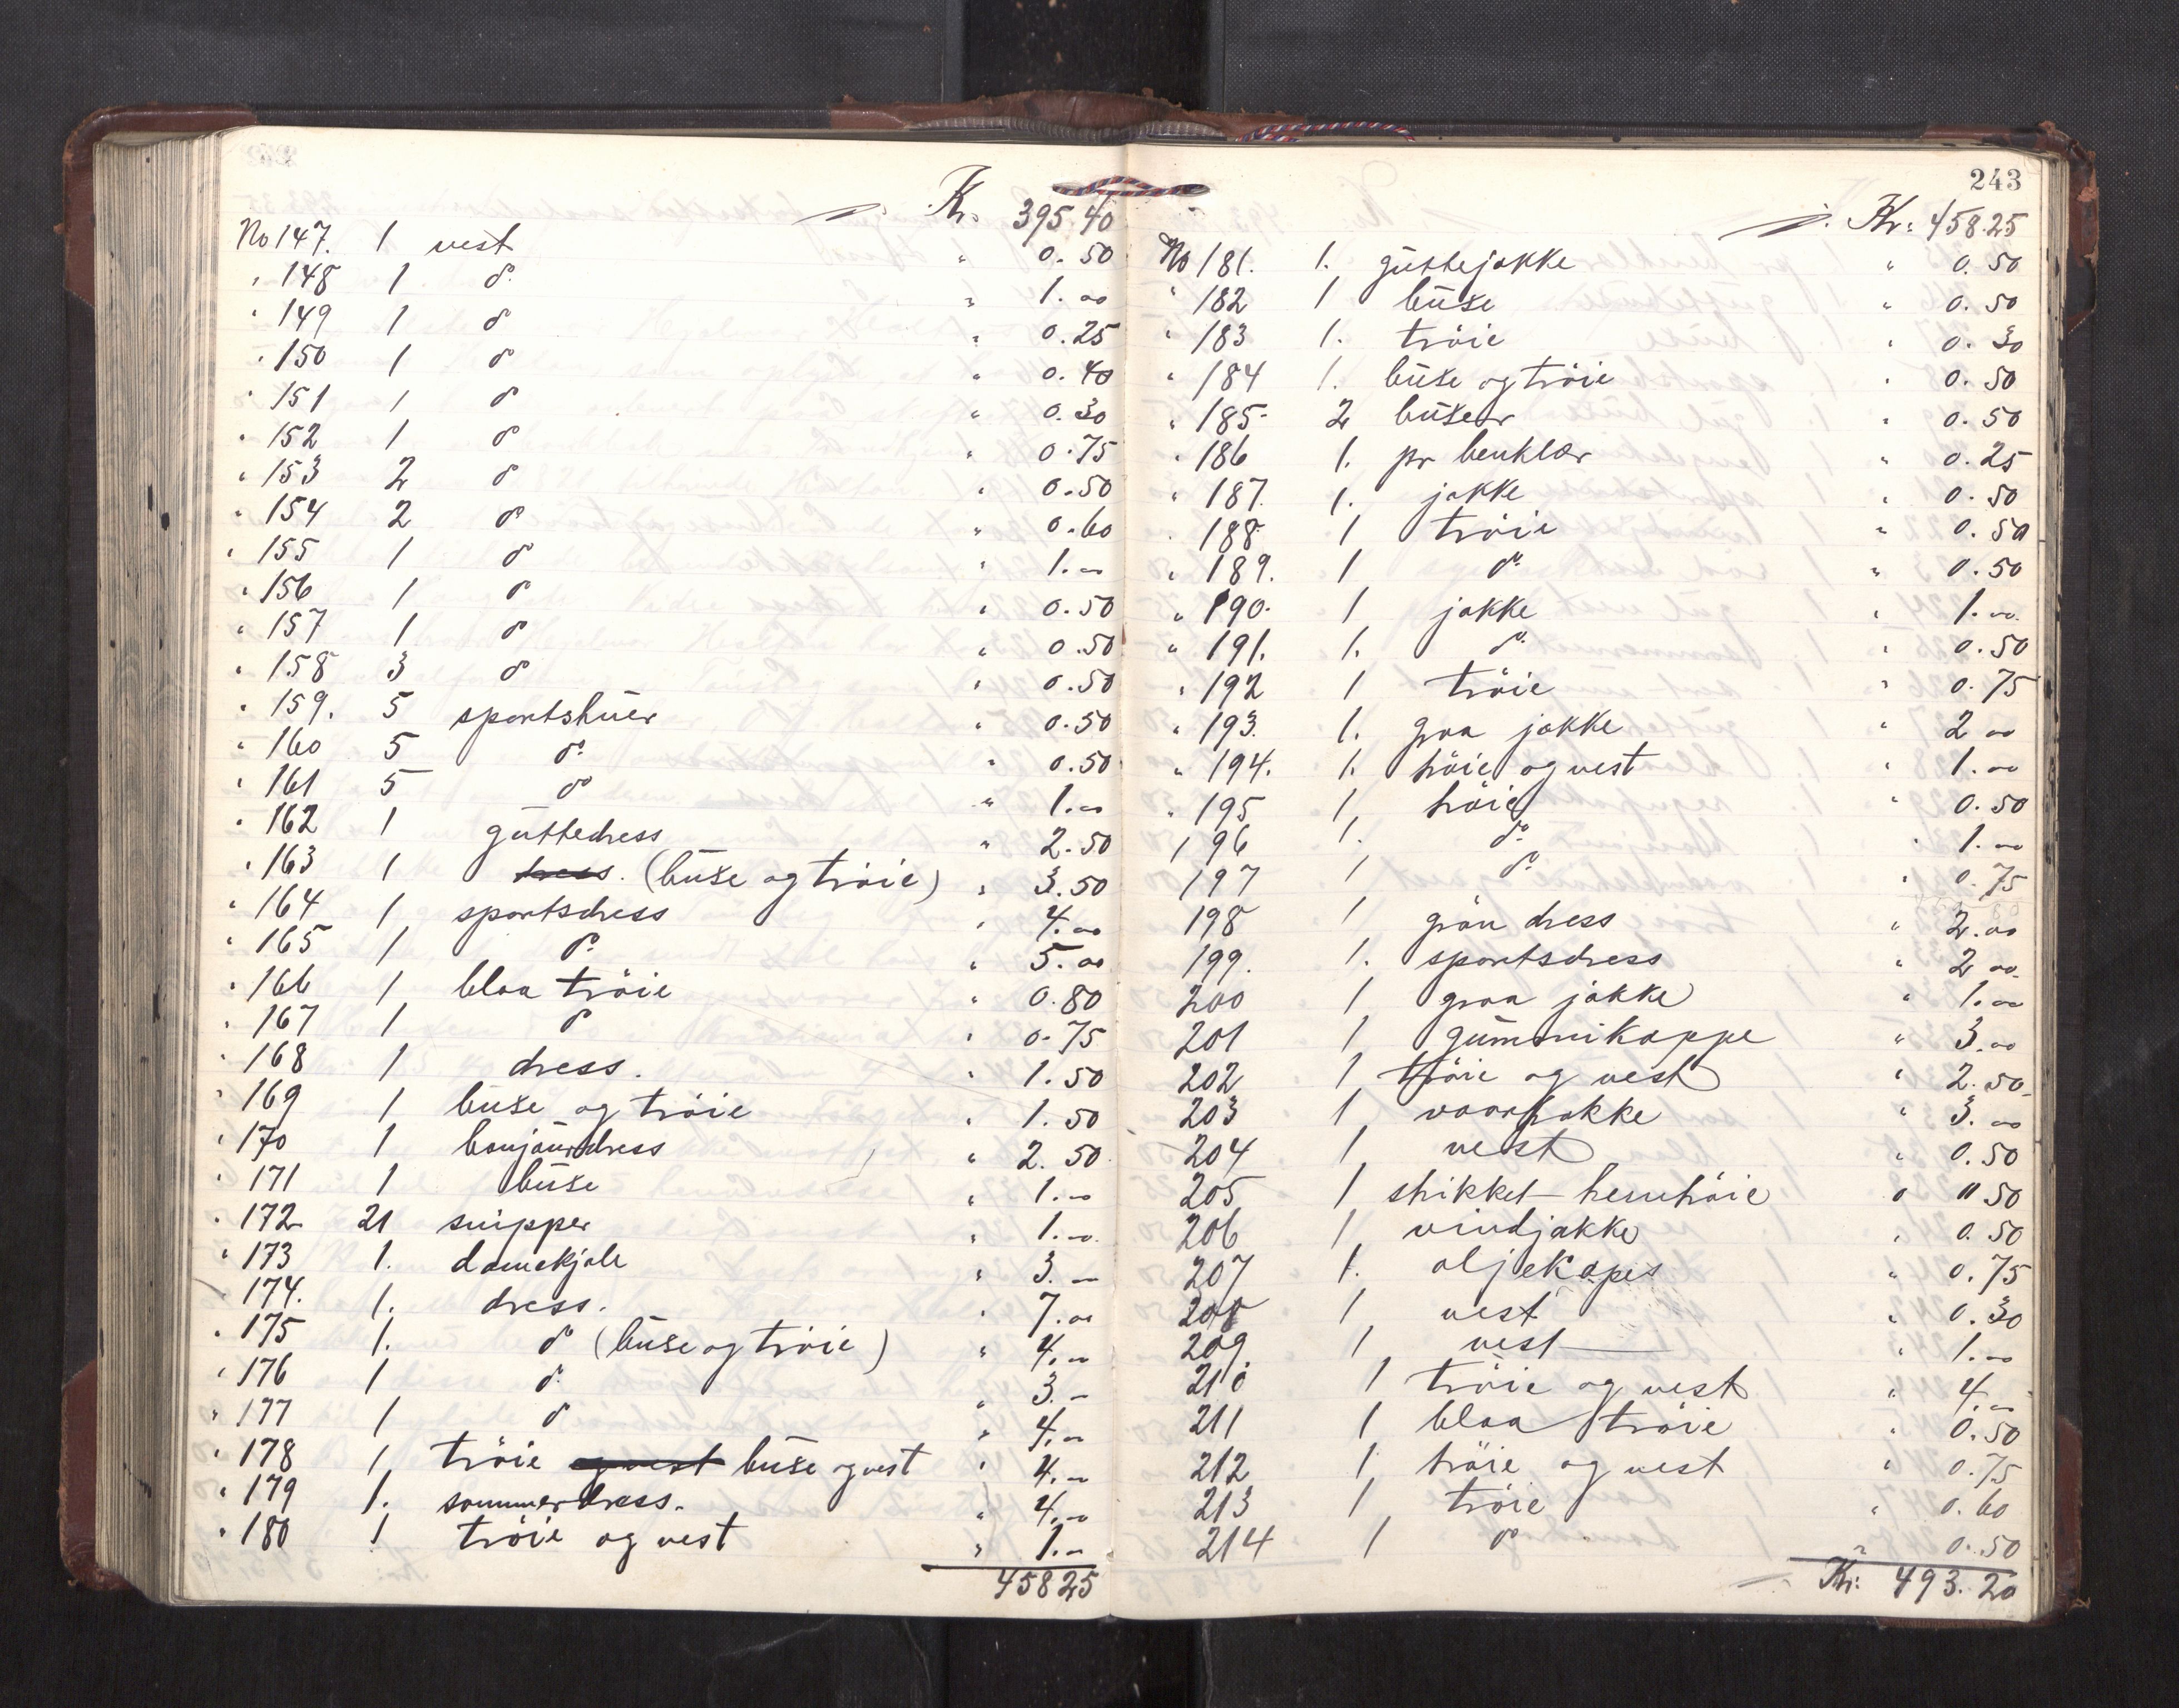 Kr. 395.40
No 147. 1 vest " 0.50
" 148 1 do. " 1.00
" 149 1 do " 0.25
" 150 1 do " 0.40
" 151 1 do " 0.30
" 152 1 do " 0.75
" 153 2 do " 0.50
" 154 2 do " 0.60
" 155 1 do " 1.00
" 156 1 do " 0.50
" 157 1 do " 0.50
" 158 3 do " 0.50
" 159. 5 sportshuer " 0.50
" 160 5 do. " 0.50
" 161 5 do " 1.00
" 162 1 guttedress " 2.50
" 163 1 dress. (buxe og tröie) " 3.50
" 164 1 sportsdress " 4.00
" 165 1 do. " 5.00
" 166 1 blaa tröie " 0.80
" 167 1 do " 0.75
" 168 1 dress. " 1.50
" 169 1 buxe og tröie " 1.50
" 170 1 bonjourdress " 2.50
" 171 1 buxe " 1.00
" 172 21 snipper " 1.00
" 173 1. damekjole " 3.00
" 174. 1. dress. " 7.00
" 175 1. do (buxe og tröie) " 4.00
" 176 1 do. " 3.00
" 177 1 do " 4.00
" 178 1 tröie og vest buxe og vest " 4.00
" 179 1. sommerdress. " 4.00
" 180 1 tröie og vest " 1.00
458 25
243
Kr: 458.25
No 181. 1. guttejakke " 0.50
" 182 1 buxe " 0.50
" 183 1. tröie " 0.30
" 184 1. buxe og tröie " 0.50
" 185 2 buxer " 0.50
" 186 1. pr benklær " 0.25
" 187. 1. jakke " 0.50
" 188 1 tröie " 0.50
" 189. 1 do. " 0.50
" 190. 1 jakke " 1.00
" 191. 1. do. " 0.50
" 192 1 tröie " 0.75
" 193. 1. graa jakke " 2 00
" 194. 1. tröie og vest " 1.00
" 195 1 tröie " 0.50
196 1. do. " 1.00
197 1 do. " 0.75
198 1 grön dress " 2.00
199. 1. sportsdress " 2 00
200 1 graa jakke " 1.00
201 1 gummikappe " 3.00
202 1 tröie og vest " 2.50
203 1 vaarfrakke " 3.00
204 1 vest " 0.50
205 1 strikket herretröie " 0 50
206 1 vindjakke " 0.50
207 1. oljekapes " 0.75
208 1 vest " 0.30
209 1 vest " 1.00
210 1 tröie og vest " 4.00
211 1 blaa tröie " 0.50
212 1 tröie og vest " 0.75
213 1 tröie " 0.60
214 1 do " 0.50
Kr: 493.20